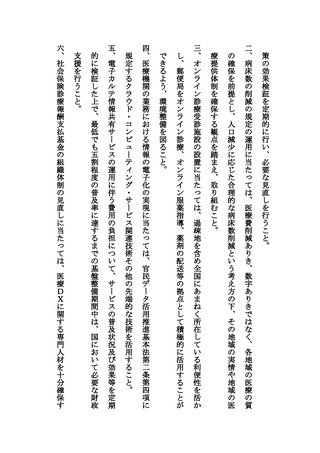 策の効果検証を定期的に行い、必要な見直しを行うこと。
二、病床数の削減の規定の運用に当たっては、医療費削減ありき、数字ありきではなく、各地域の医療の質
の確保を前提とし、人口減少に応じた合理的な病床数削減という考え方の下、その地域の実情や地域の医
療提供体制を確保する観点を踏まえ、取り組むこと。
三、オンライン診療受診施設の設置に当たっては、過疎地を含め全国にあまねく所在している利便性を活か
し、郵便局をオンライン診療、オンライン服薬指導、薬剤の配送等の拠点として積極的に活用することが
できるよう、環境整備を図ること。
四、医療機関の業務における情報の電子化の実現に当たっては、官民データ活用推進基本法第二条第四項に
規定するクラウド・コンピューティング・サービス関連技術その他の先端的な技術を活用すること。
五、電子カルテ情報共有サービスの運用に伴う費用の負担について、サービスの普及状況及び効果等を定期
的に検証した上で、最低でも五割程度の普及率に達するまでの基盤整備期間中は、国において必要な財政
支援を行うこと。
六、社会保険診療報酬支払基金の組織体制の見直しに当たっては、医療ＤＸに関する専門人材を十分確保す